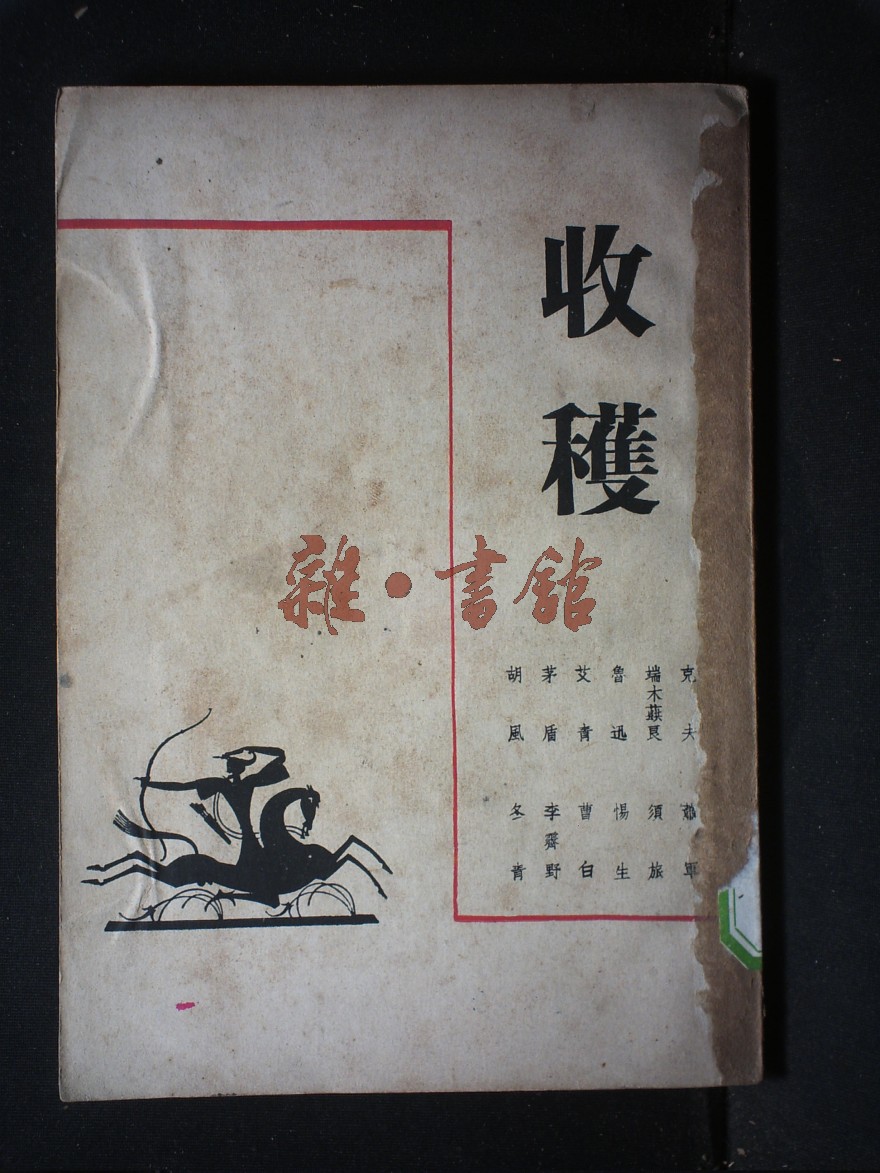 收穫
克夫 軍
端木蕻良 須旅
魯迅 惕生
艾青 曹白
茅盾 李霽野
胡風 冬青
雜·書館